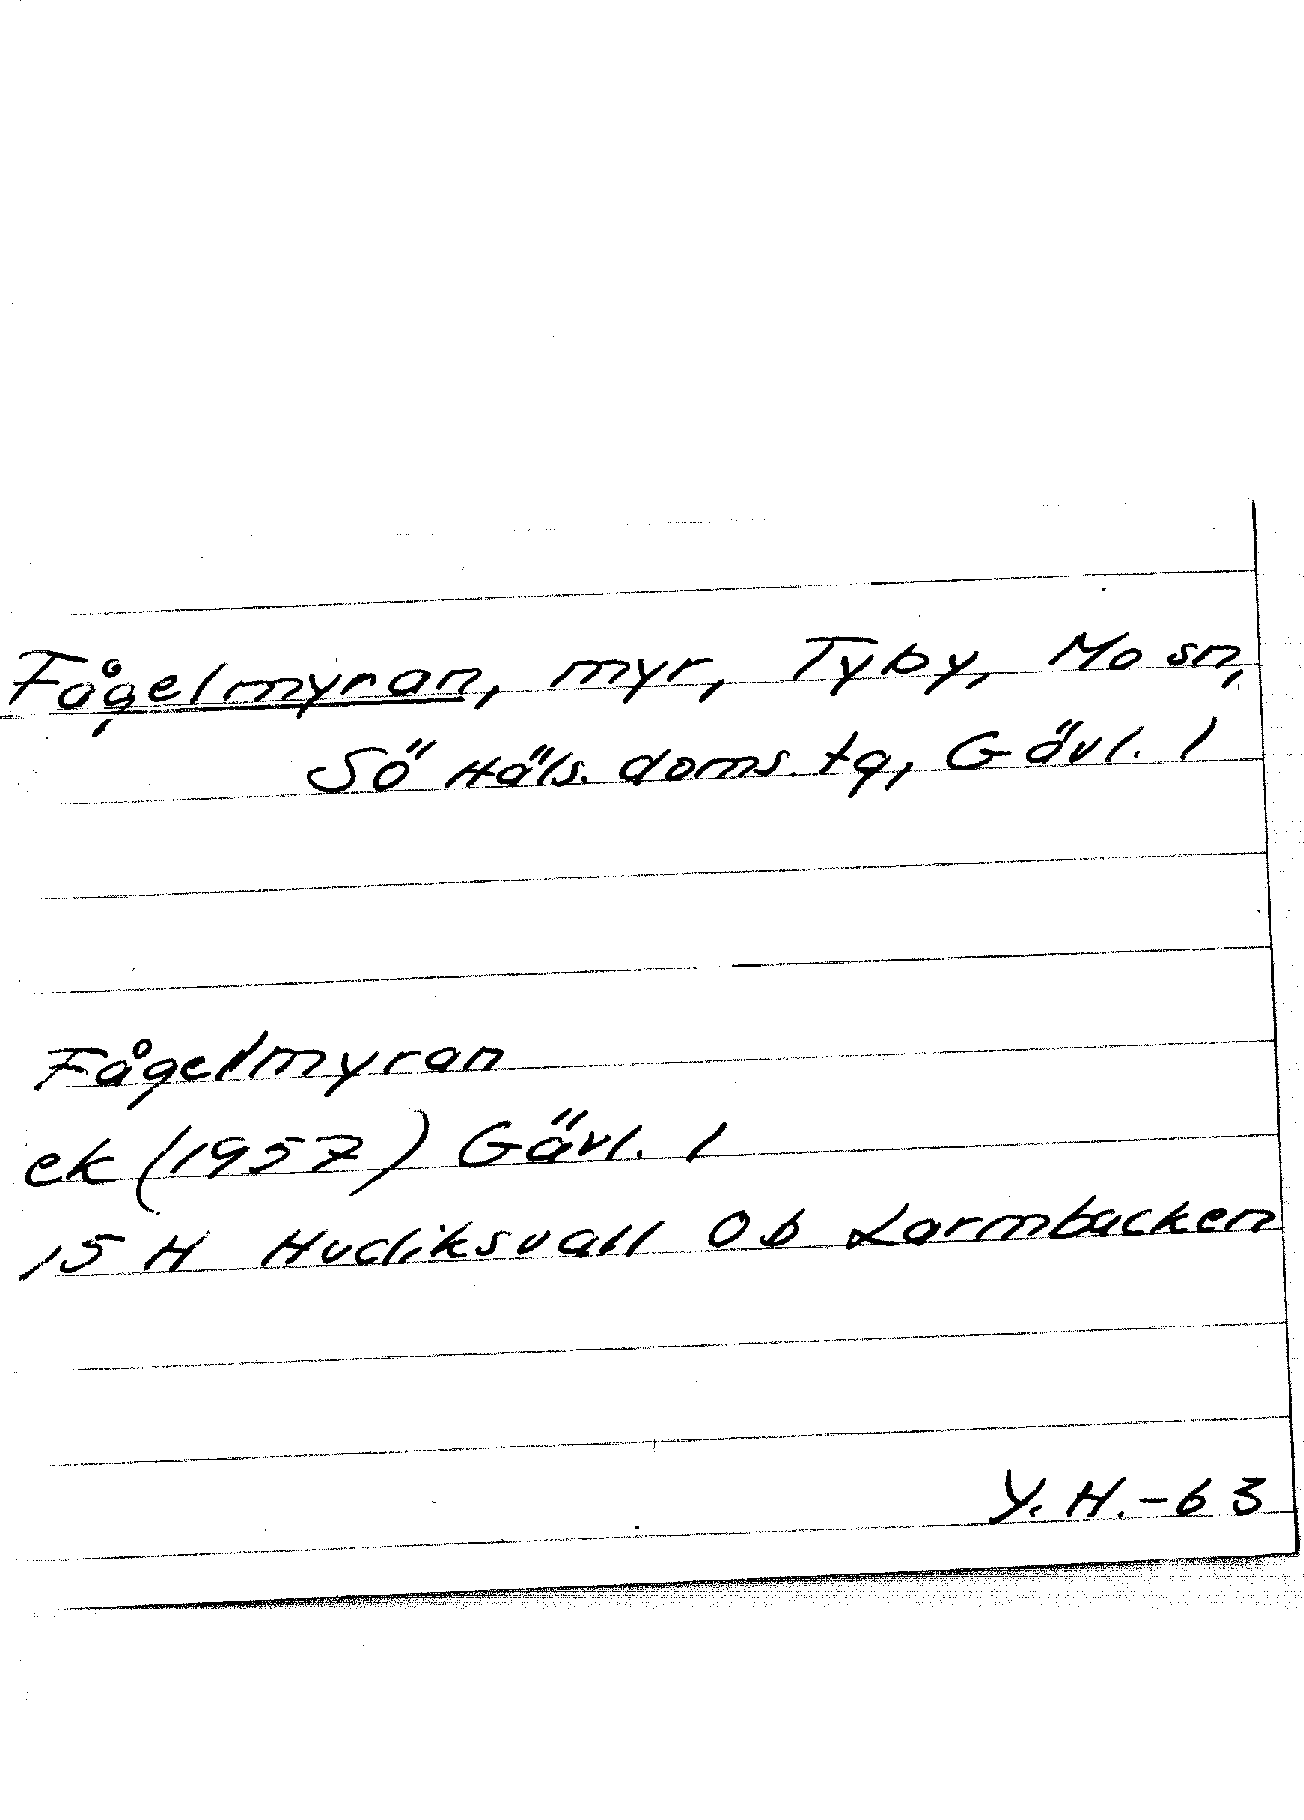 Fågelmyran, myr, Tyby, Mo sn,
Sö Häls. doms. tg, Gävl. l
Fågelmyran
ek (1957) Gävl. l
15 H Hudiksvall 0 b Larmbacken
Y. H. - 63